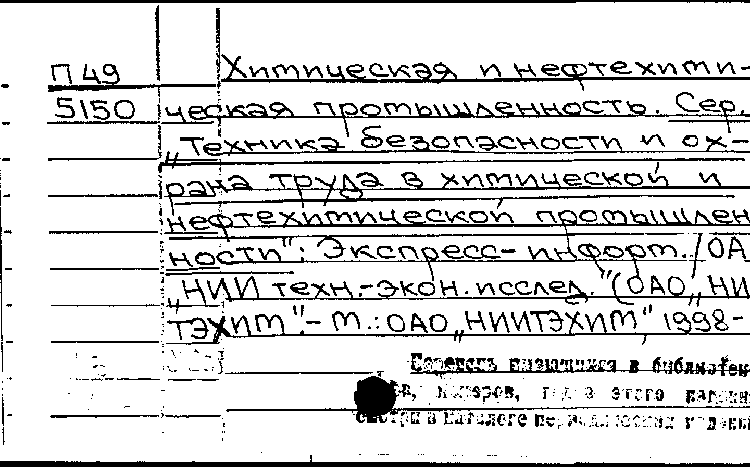 П 49 Химическая и нефтехими-
5150 ческая промышленность. Сер.
„Техника безопасности и ох-
рана труда в химической и
нефтехимической промышлен
ности": Экспресс-информ./ОА
„НИИ техн.-экон. исслед."(ОАО „НИ
ТЭХИМ".- М.: ОАО „НИИТЭХИМ", 1998-
имеющихся в библиотек
номеров, этого
смотри в каталоге